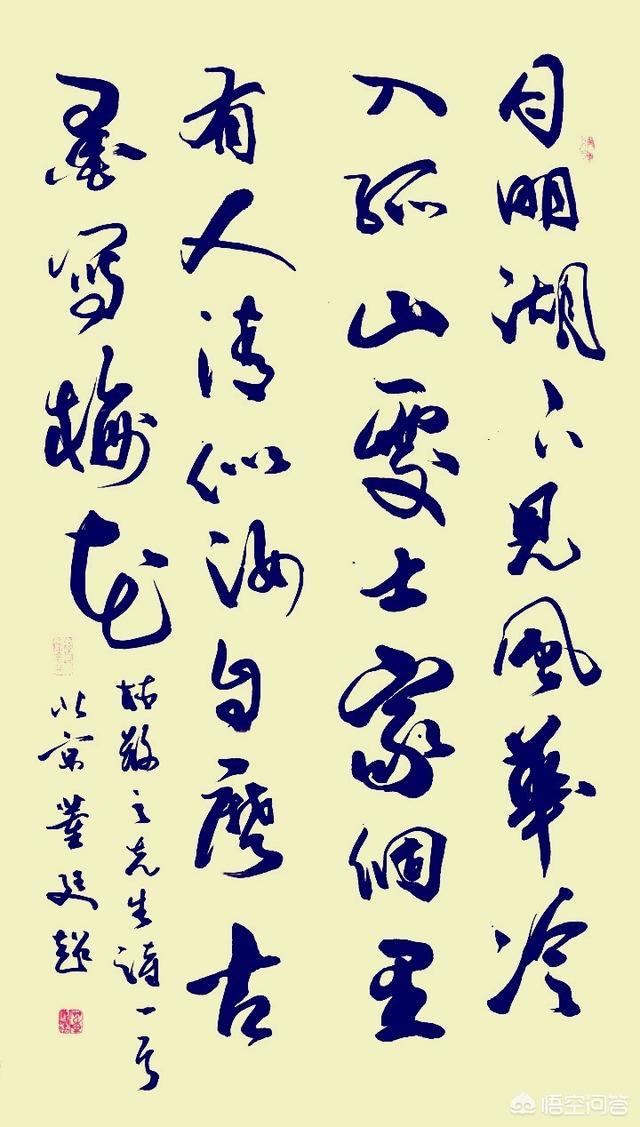 月明湖下見風華冷
入孤山處士家個里
有人清似汝自磨古
墨寫梅花
林散之先生詩一首
北京董廷超
悟空问答